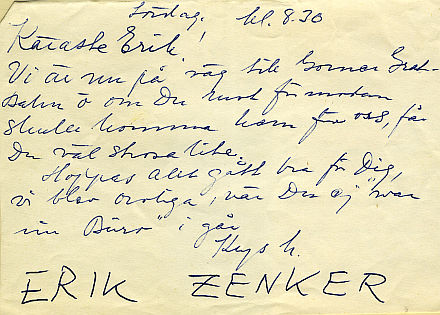 Lördag. kl. 8.30
Käraste Erik!
Vi är nu på väg till Gorner Grat-
Bahn o om Du runt förmodan
skulle komma hem före oss, får
Du väl strosa lite.
Hoppas allt gått bra för Dig,
vi blev oroliga, när Du ej "war
im Büro" i går
Kys h.
ERIK ZENKER